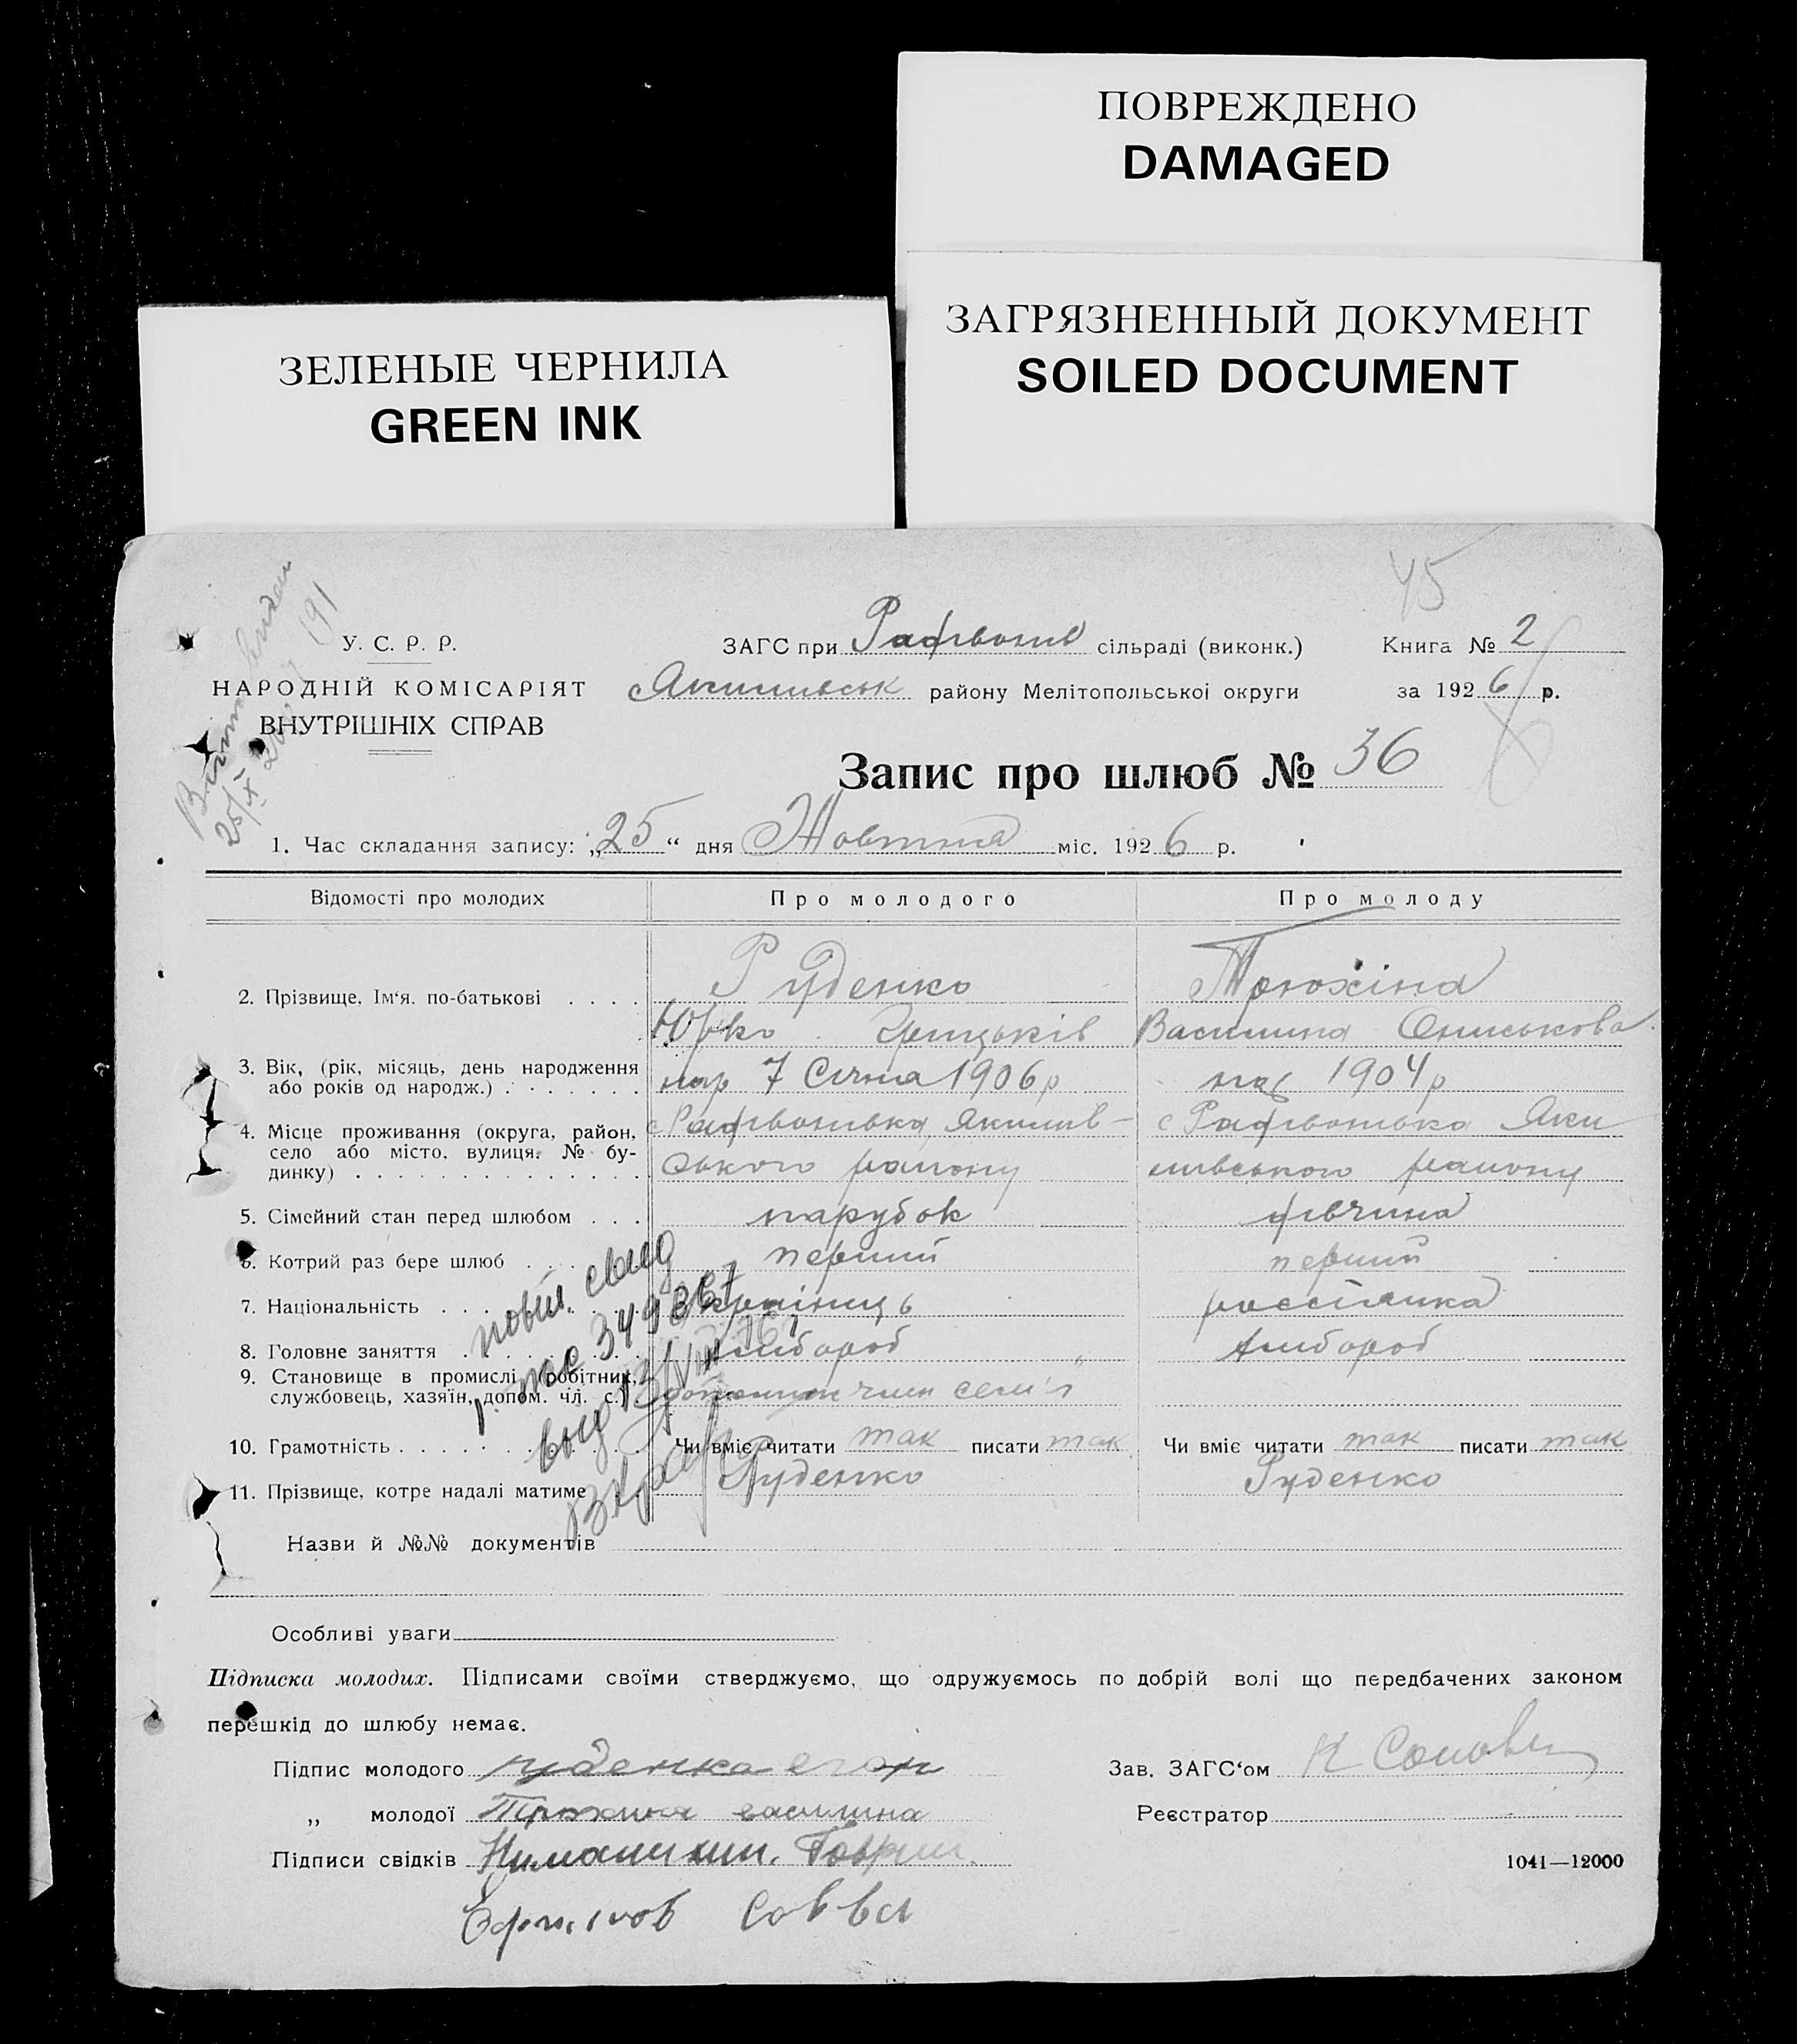 ПОВРЕЖДЕНО
DAMAGED
ЗАГРЯЗНЕННЫЙ ДОКУМЕНТ
SOILED DOCUMENT
ЗЕЛЕНЫЕ ЧЕРНИЛА
GREEN INK
45
У. С. Р. Р.
НАРОДНІЙ КОМІСАРІЯТ
ВНУТРІШНІХ СПРАВ
ЗАГС при сільраді (виконк.)
Якимівськ району Мелітопольської округи
Книга № 2
за 1926 р.
Запис про шлюб № 36
1. Час складання запису: „25“ дня Жовтня міс. 1926 р.
Відомості про молодих Про молодого Про молоду
2. Прізвище, Ім‘я. по-батькові . . . . Руденко Трюхіна
Юрко Грицьків Василина Ониськова
3. Вік, (рік, місяць, день народження
або років од народж.) . . . . . . . нар 7 Січня 1906 р нар 1904 р
4. Місце проживання (округа, район,
село або місто, вулиця. № бу-
динку) . . . . . . . . . . . . . . ського району мівського району
5. Сімейний стан перед шлюбом . . . парубок дівчина
6. Котрий раз бере шлюб . . . . перший перший
7. Національність . . . . . українець россіянка
8. Головне заняття . . . . . хлібороб хлібороб
9. Становище в промислі (робітник,
службовець, хазяїн, допом. чл. с.) член семʼї
10. Грамотність . . . . . Чи вміє читати так писати так Чи вміє читати так писати так
11. Прізвище, котре надалі матиме Руденко Руденко
Назви й №№ документів
Особливі уваги
Підписка молодих. Підписами своїми стверджуємо, що одружуємось по добрій волі що передбачених законом
перешкід до шлюбу немає.
Підпис молодого руденка егор Зав. ЗАГС‘ом
„ молодої Трюхина василина Реєстратор
Підписи свідків
1041—12000
Савва